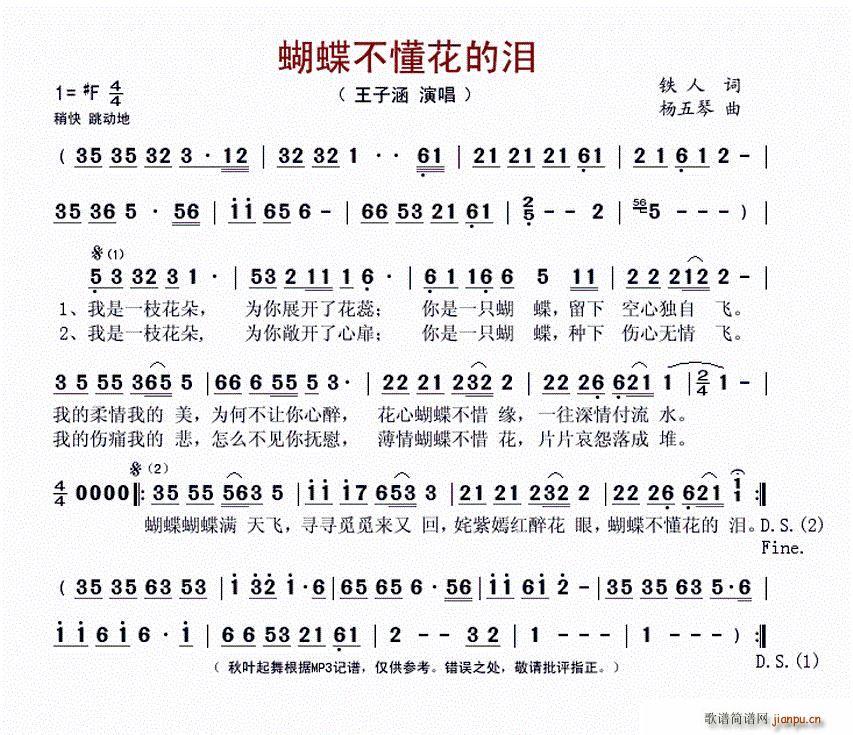 蝴蝶不懂花的泪
1=♯F 4/4
（ 王子涵 演唱 ）
铁 人 词
稍快 跳动地
杨五琴 曲
( 35 35 32 3 · 12 | 32 32 1 · · 61 | 21 21 21 61 | 2 1 6 1 2 - |
35 36 5 · 56 | i i 65 6 - | 66 53 21 61 | 2/5 - - 2 | 56 5 - - - ) |
𝄋(1)
5 3 32 3 1 · | 53 2 11 1 6 · | 6 1 16 6 5 11 | 2 2 212 2 - |
1、我是一枝花朵， 为你展开了花蕊； 你是一只蝴 蝶，留下 空心独自 飞。
2、我是一枝花朵， 为你敞开了心扉； 你是一只蝴 蝶，种下 伤心无情 飞。
3 5 55 365 5 | 66 6 55 5 3 · | 22 21 232 2 | 22 26 621 1 | 2/4 1 - |
我的柔情我的 美，为何不让你心醉， 花心蝴蝶不惜 缘，一往深情付流 水。
我的伤痛我的 悲，怎么不见你抚慰， 薄情蝴蝶不惜 花，片片哀怨落成 堆。
𝄋(2)
4/4 0000 ‖: 35 55 563 5 | i i i7 653 3 | 21 21 232 2 | 22 26 621 i/1 :‖
蝴蝶蝴蝶满 天飞，寻寻觅觅来又 回，姹紫嫣红醉花 眼，蝴蝶不懂花的 泪。D.S.(2)
Fine.
( 35 35 63 53 | i 32 i · 6 | 65 65 6 · 56 | i i 6i 2 - | 35 35 63 5·6 |
i i 6 i 6 · i | 6 6 53 21 61 | 2 - - 32 | 1 - - - | 1 - - - ) :‖
（ 秋叶起舞根据MP3记谱，仅供参考。错误之处，敬请批评指正。）
D.S.(1)
歌谱简谱网 jianpu.cn